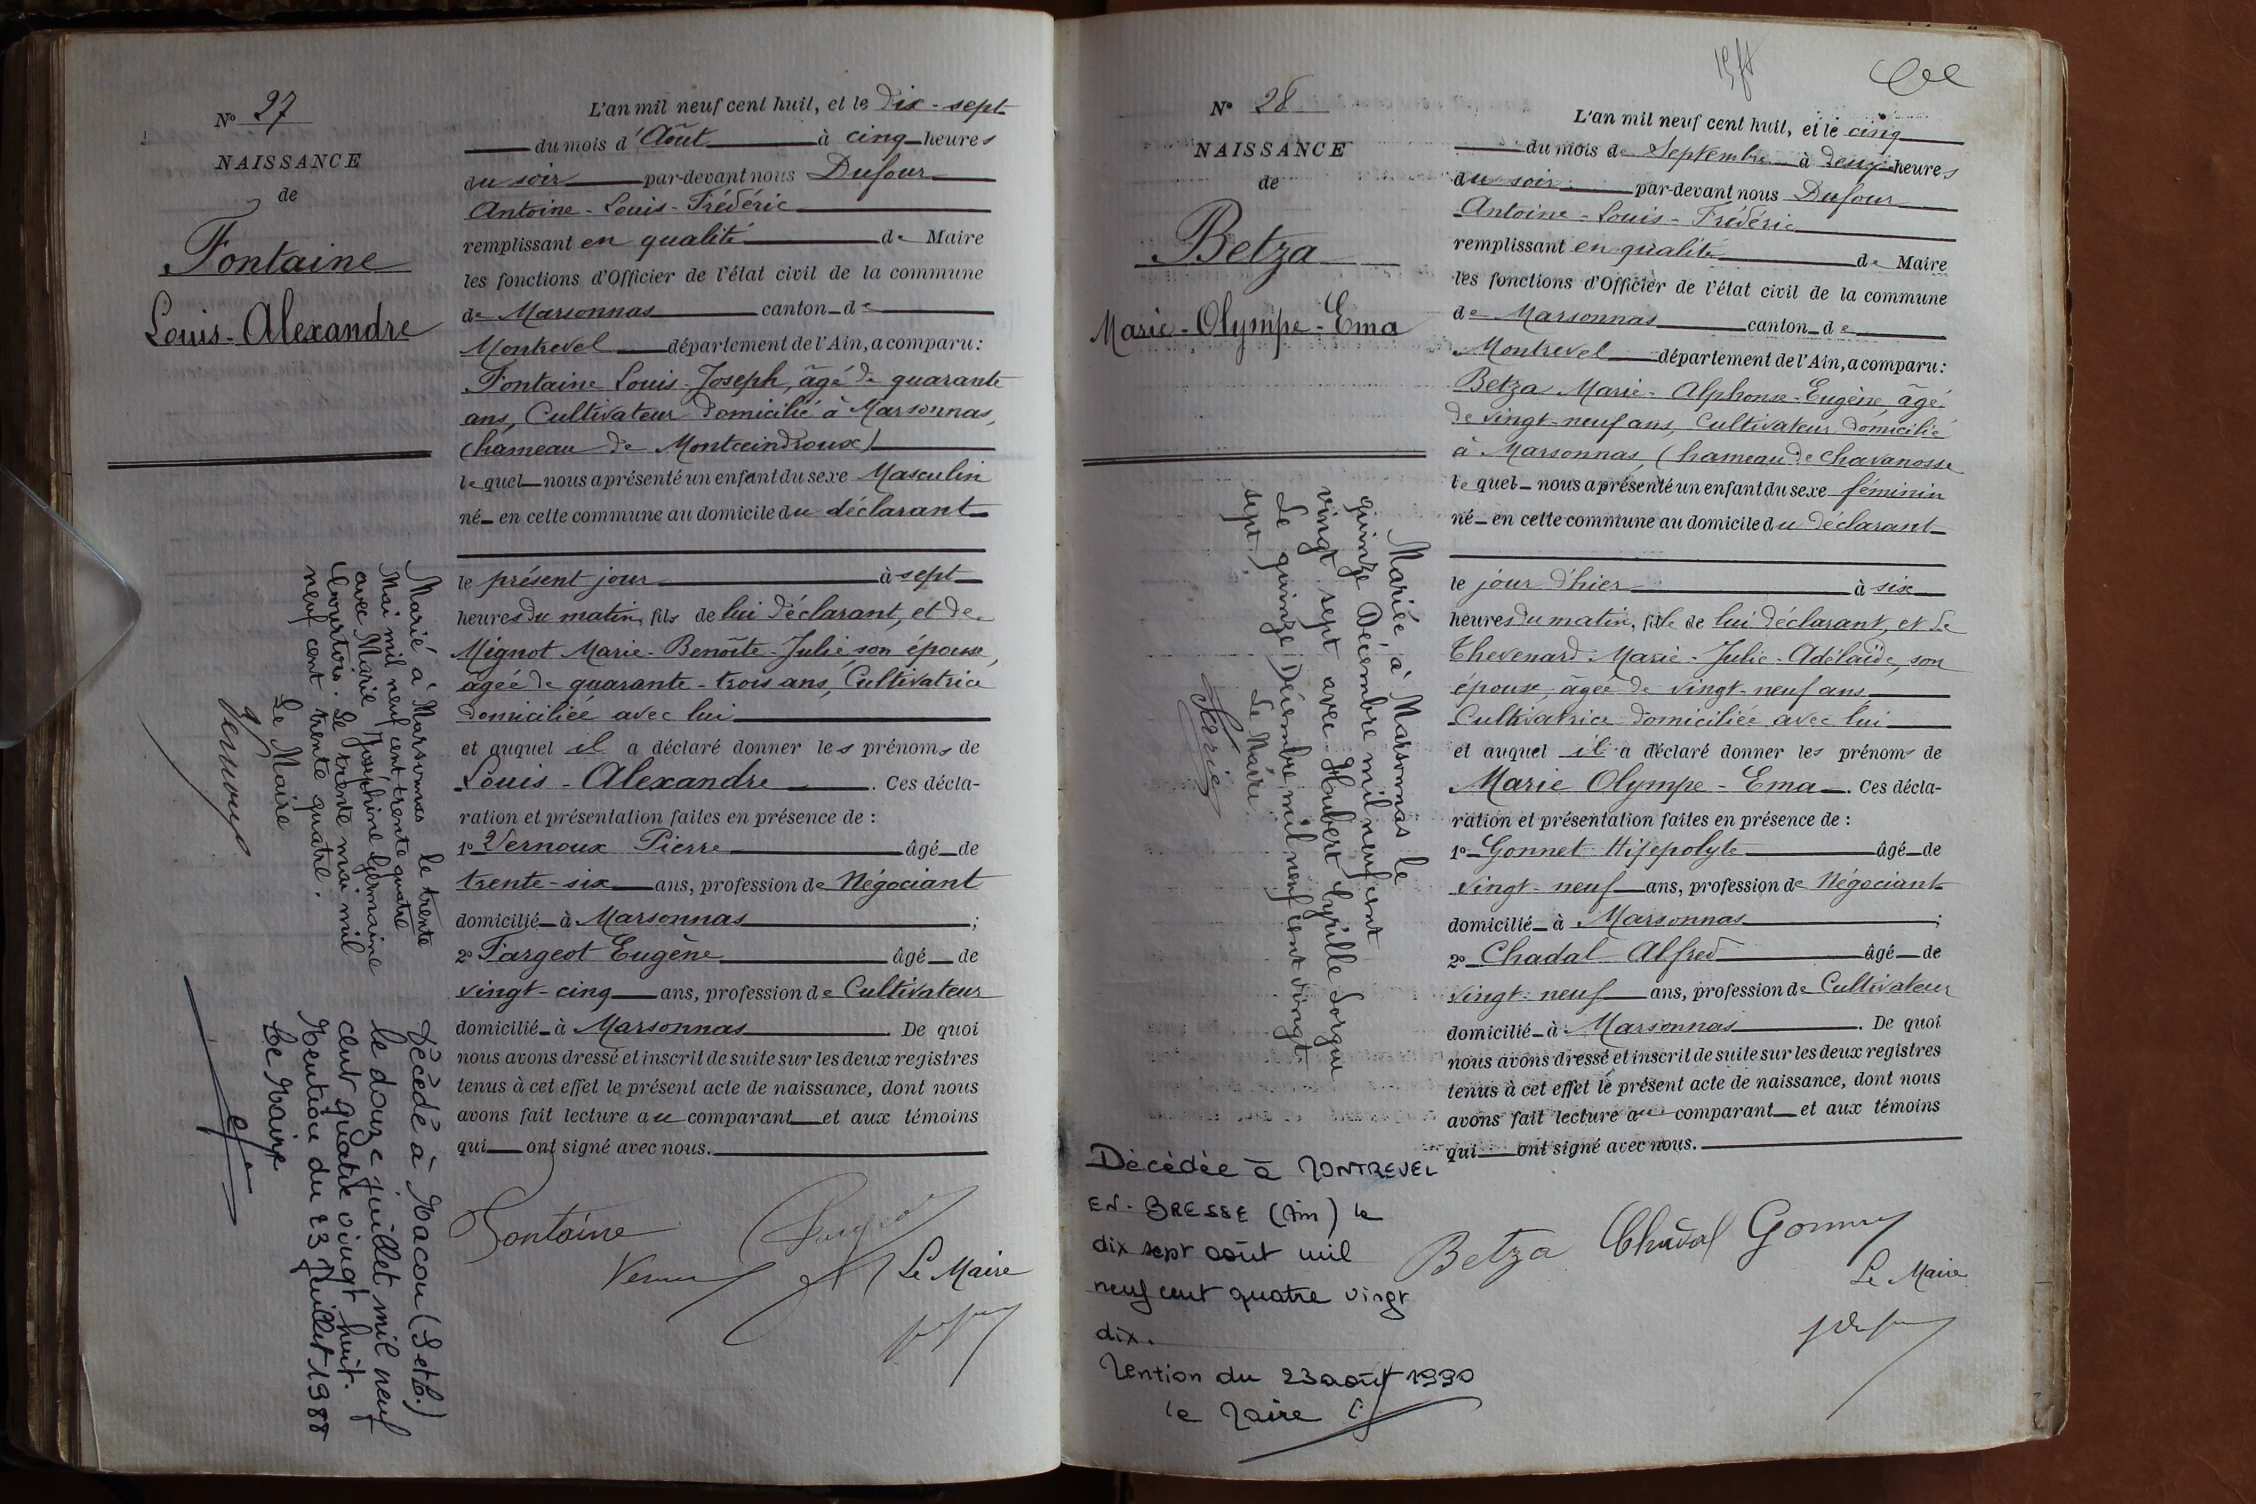 N° 27
NAISSANCE
de
Fontaine
Louis-Alexandre
L'an mil neuf cent huit, et le dix-sept
du mois d'Août à cinq heures
du soir par-devant nous Dufour
Antoine-Louis-Frédéric
remplissant en qualité de Maire
les fonctions d'Officier de l'état civil de la commune
de Marsonnas canton de
Montrevel département de l'Ain, a comparu:
Fontaine Louis-Joseph, âgé de quarante
ans, Cultivateur domicilié à Marsonnas,
(hameau de Montceindroux)
lequel nous a présenté un enfant du sexe Masculin
né en cette commune au domicile du déclarant
le présent jour à sept
heures du matin, fils de lui déclarant, et de
Mignot Marie-Benoîte-Julie son épouse,
âgée de quarante-trois ans, Cultivatrice
domiciliée avec lui
et auquel il a déclaré donner les prénoms de
Louis-Alexandre. Ces décla-
ration et présentation faites en présence de :
1° Vernoux Pierre âgé de
trente-six ans, profession de Négociant
domicilié à Marsonnas ;
2° Fargeot Eugène âgé de
vingt-cinq ans, profession de Cultivateur
domicilié à Marsonnas. De quoi
nous avons dressé et inscrit de suite sur les deux registres
tenus à cet effet le présent acte de naissance, dont nous
avons fait lecture au comparant et aux témoins
qui ont signé avec nous.
Fontaine
Le Maire
Marié à Marsonnas le trente
Mai mil neuf cent trente quatre
avec Marie Joséphine Germaine
Courtois. Le trente mai mil
neuf cent trente quatre.
Le Maire
Vernoux
Décédé à Macon (S et L.)
le douze juillet mil neuf
cent quatre vingt huit.
Mention du 23 Juillet 1988
Le Maire
N° 28
NAISSANCE
de
Betza
Marie-Olympe-Ema
L'an mil neuf cent huit, et le cinq
du mois de Septembre à deux heures
du soir par-devant nous Dufour
Antoine-Louis-Frédéric
remplissant en qualité de Maire
les fonctions d'Officier de l'état civil de la commune
de Marsonnas canton de
Montrevel département de l'Ain, a comparu:
Betza Marie-Alphonse-Eugène âgé
de vingt-neuf ans, Cultivateur domicilié
à Marsonnas, (hameau de Chavanosse
lequel nous a présenté un enfant du sexe féminin
né en cette commune au domicile du déclarant
le jour d'hier à six
heures du matin, fille de lui déclarant, et de
Thevenard Marie-Julie-Adélaïde, son
épouse, âgée de vingt-neuf ans
Cultivatrice domiciliée avec lui
et auquel il a déclaré donner les prénoms de
Marie Olympe-Ema. Ces décla-
ration et présentation faites en présence de :
1° Gonnet Hippolyte âgé de
vingt-neuf ans, profession de Négociant
domicilié à Marsonnas ;
2° Chadal Alfred âgé de
vingt-neuf ans, profession de Cultivateur
domicilié à Marsonnas. De quoi
nous avons dressé et inscrit de suite sur les deux registres
tenus à cet effet le présent acte de naissance, dont nous
avons fait lecture au comparant et aux témoins
qui ont signé avec nous.
Betza Chadal Gonnet
Le Maire
Mariée à Marsonnas le
quinze Décembre mil neuf cent
vingt sept avec Hubert Cyrille Sorgue
Le quinze Décembre mil neuf cent vingt
sept.
Le Maire
Décédée à MONTREVEL
EN-BRESSE (Ain) le
dix sept août mil
neuf cent quatre vingt
dix.
Mention du 23 août 1990
le Maire